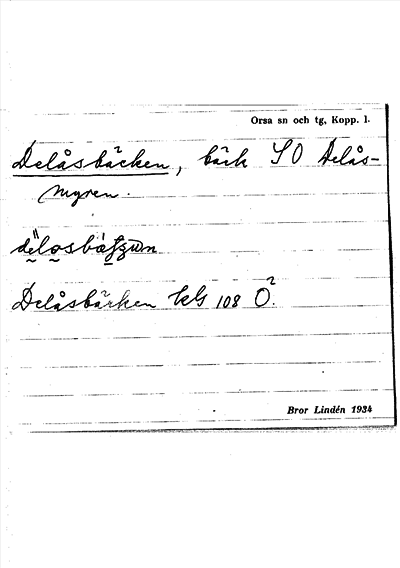 Orsa sn och tg, Kopp. l.
Delåsbäcken, bäck SO Delås-
myren.
Delåsbäcken kbl 108 Ö².
Bror Lindén 1934